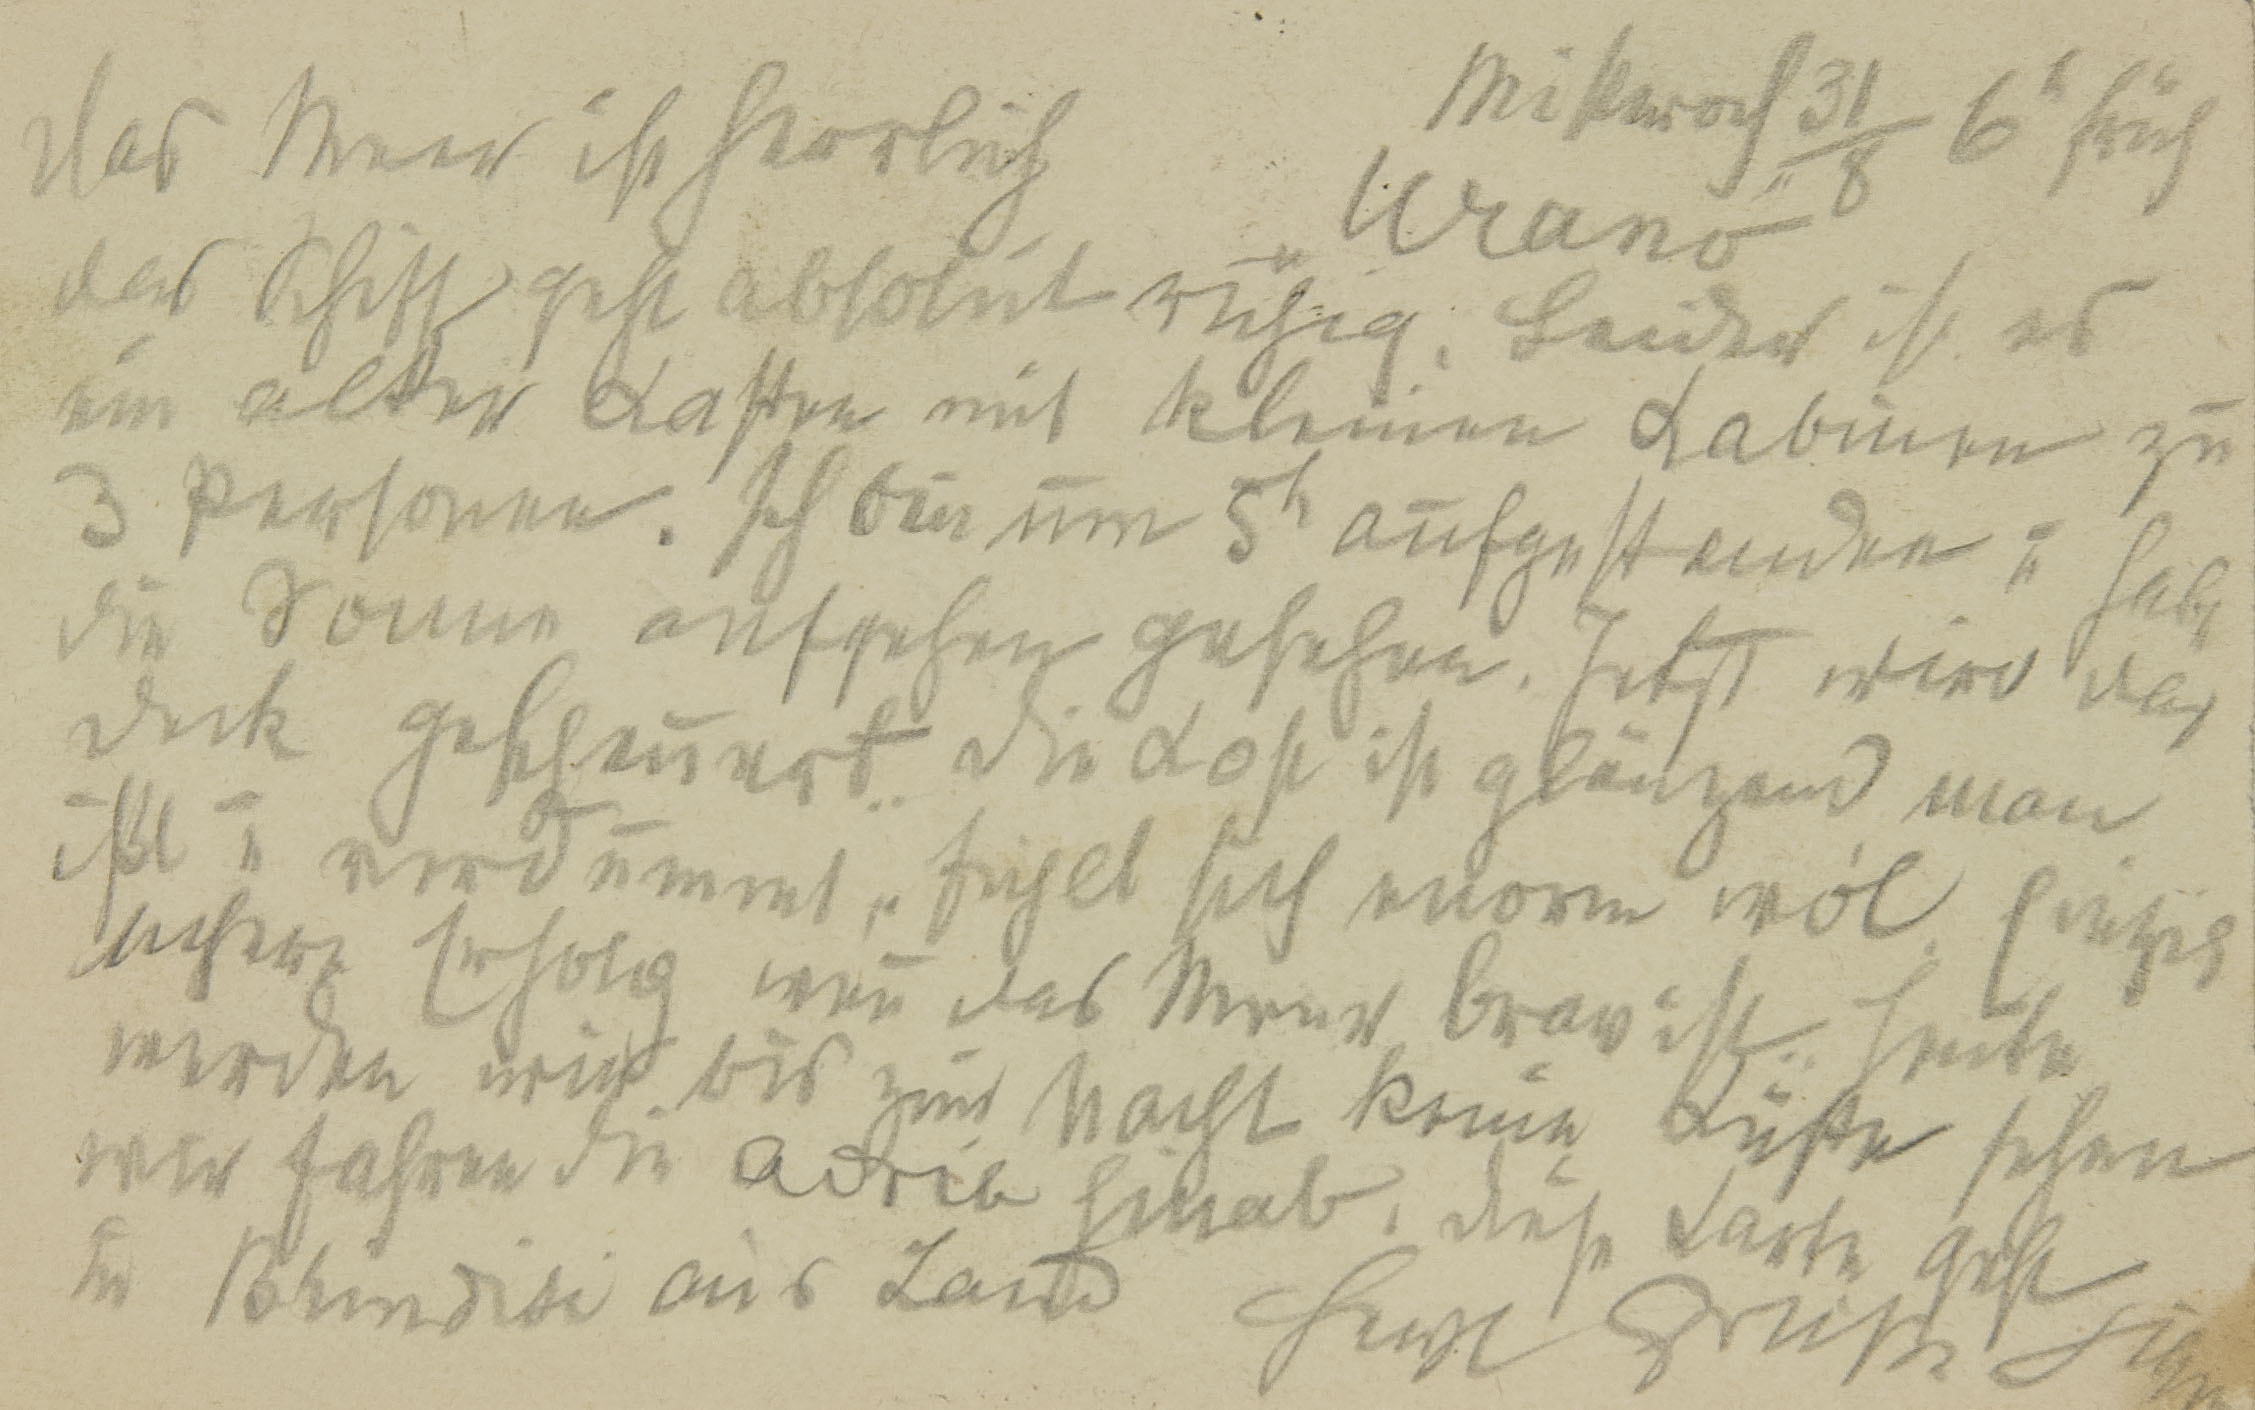 Mittwoch 31/8 6h früh
"Urano"
Das Meer ist herrlich
das Schiff geht absolut ruhig. Leider ist es
ein alter Kasten mit kleinen Kabinen zu
3 Personen. Ich bin um 5h aufgestanden u habe
die Sonne aufgehen gesehen. Jetzt wird das
Deck gescheuert. Die Kost ist glänzend man
ißt u verdummt u fühlt sich enorm wol.
sicherer Erfolg wen̄ das Meer brav ist. Heute
werden wir bis zur Nacht keine Küste sehen
wir fahren die Adria hinab. Diese Karte geht
in Brindisi ans Land Herzl Grüße